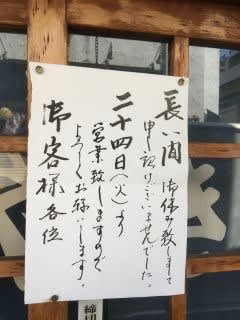 長い間 御休み致しまして
申し訳けございませんでした。
二十四日(火)より
営業致しますので
よろしくお願いします。
御客様各位
締切